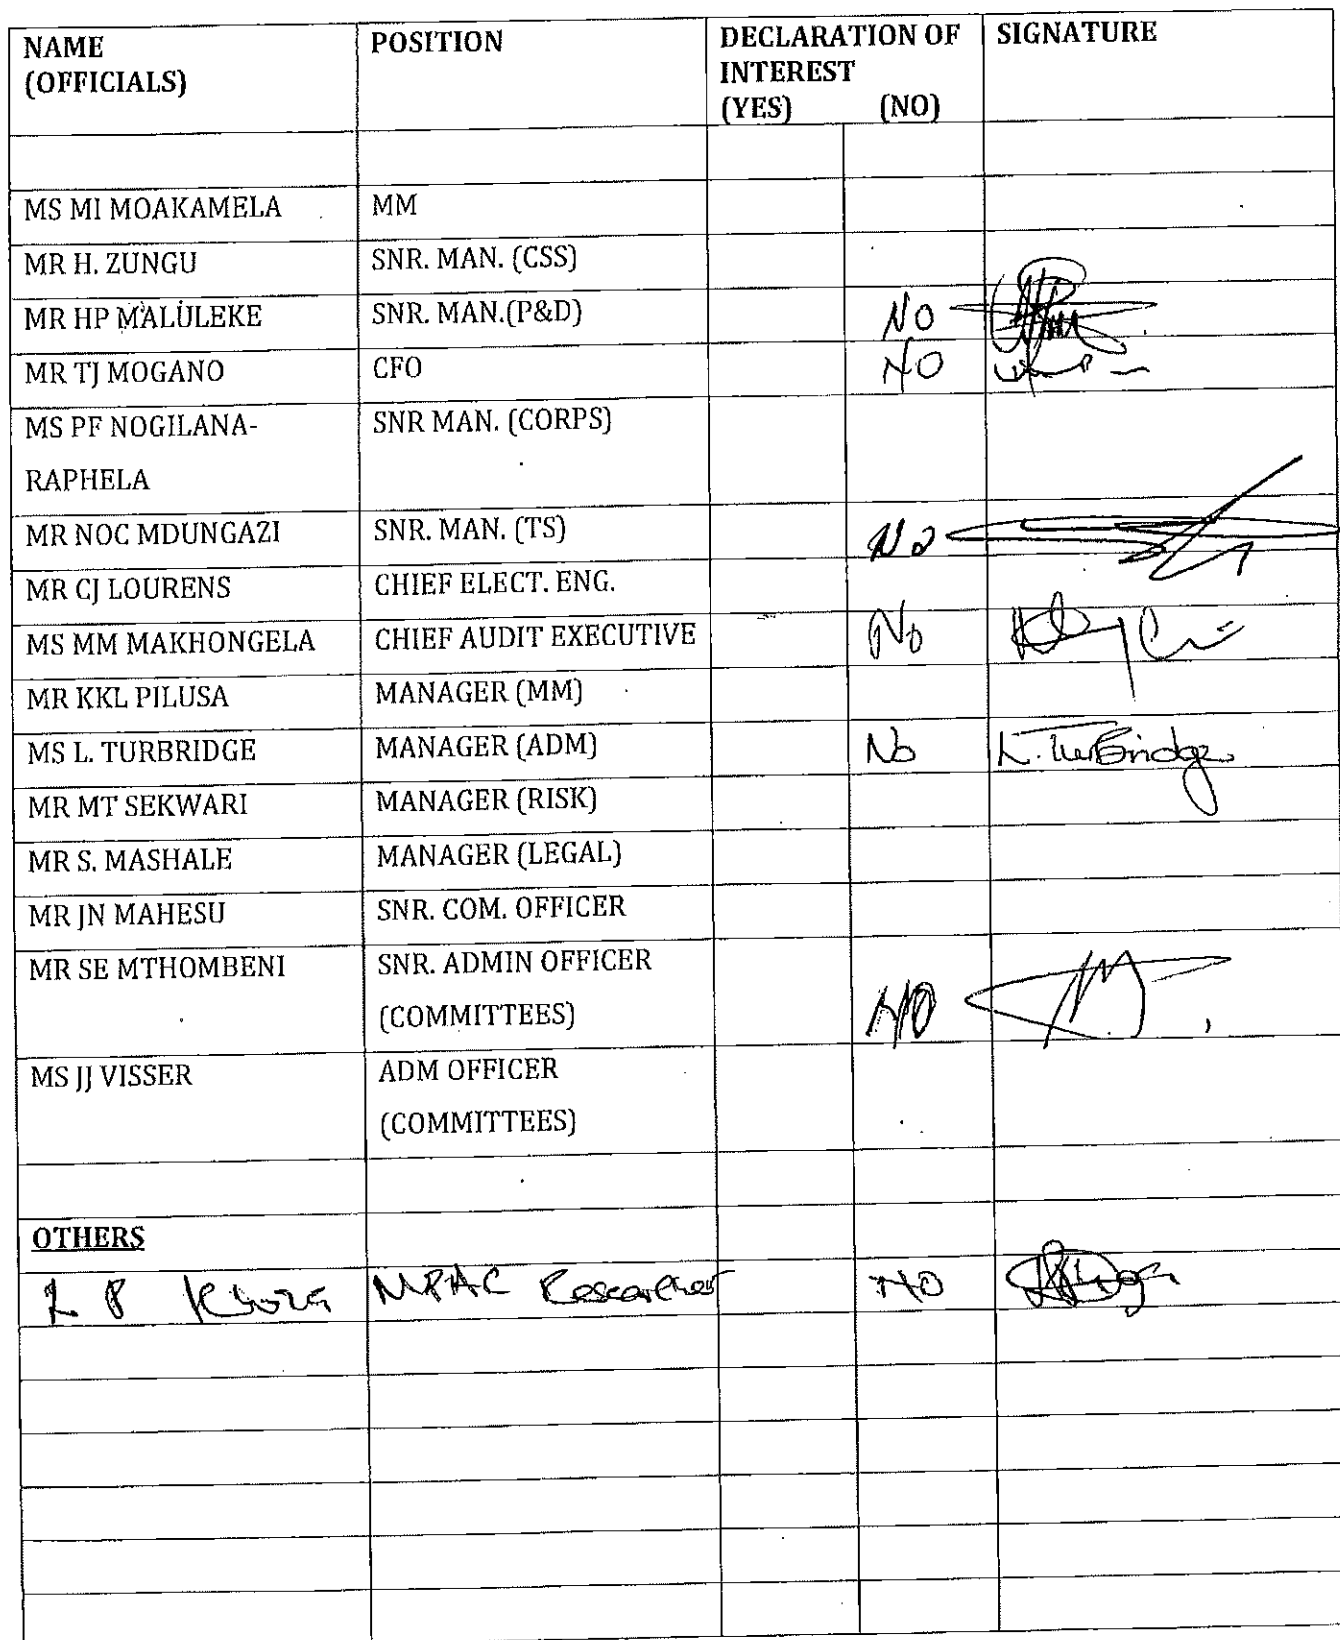 NAME POSITION DECLARATION OF SIGNATURE
(OFFICIALS) INTEREST
(YES) (NO)
MS MI MOAKAMELA MM
MR H. ZUNGU SNR. MAN. (CSS)
MR HP MALULEKE SNR. MAN.(P&D) NO
MR TJ MOGANO CFO NO
MS PF NOGILANA- SNR MAN. (CORPS)
RAPHELA
MR NOC MDUNGAZI SNR. MAN. (TS) No
MR CJ LOURENS CHIEF ELECT. ENG.
MS MM MAKHONGELA CHIEF AUDIT EXECUTIVE No
MR KKL PILUSA MANAGER (MM)
MS L. TURBRIDGE MANAGER (ADM) No L. TurBridge
MR MT SEKWARI MANAGER (RISK)
MR S. MASHALE MANAGER (LEGAL)
MR JN MAHESU SNR. COM. OFFICER
MR SE MTHOMBENI SNR. ADMIN OFFICER
(COMMITTEES) NO
MS JJ VISSER ADM OFFICER
(COMMITTEES)
OTHERS
L P Khoza MPAC Researcher NO